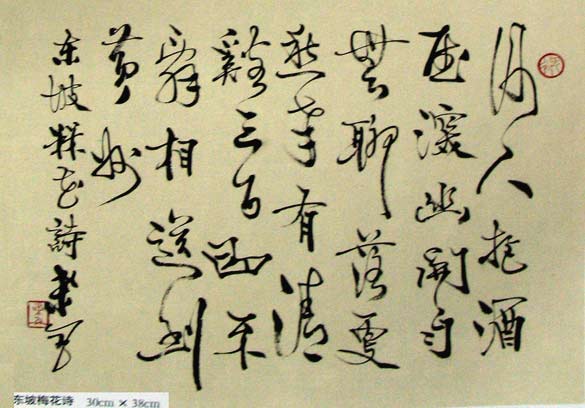 何人把酒
慰深幽開自
無聊落更
愁幸有清
谿三百曲不
辭相送到
黄州
东坡楳花詩
东坡梅花诗 30cm × 38cm